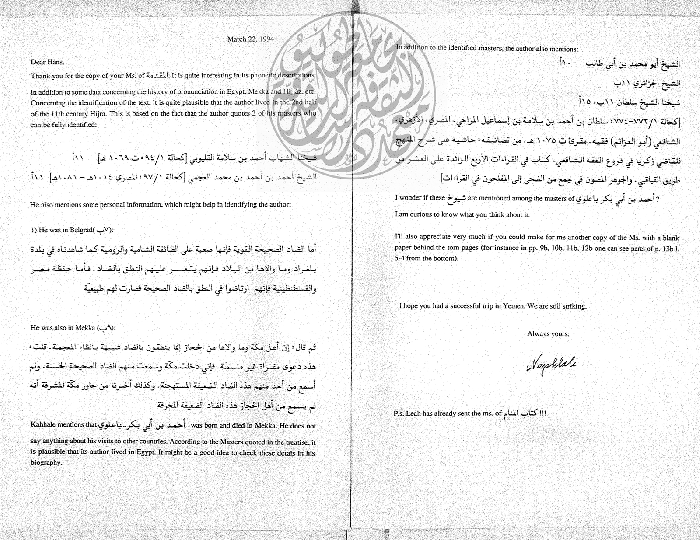 March 22, 1994
Dear Hans,
Thank you for the copy of your Ms. of المقدمة. It is quite interesting in its phonetic descriptions.
In addition to some data concerning the history of pronunciation in Egypt, Mekka and Hijaz, etc.
Concerning the identification of the text, it is quite plausible that the author lived in the 2nd half
of the 11th century Hijra. This is based on the fact that the author quotes 2 of his masters who
can be fully identified:
شيخنا الشهاب أحمد بن سلامة القليوبي [كحالة ١/٩٤؛ ت ١٠٦٩ هـ] ١١أ
الشيخ أحمد بن أحمد بن محمد العجمي [كحالة ١/٩٧؛ المصري ١٠١٤هـ-١٠٨٦هـ] ١١أ
He also mentions some personal information, which might help in identifying the author:
1) He was in Belgrad (٧ب):
أما الضاد الصحيحة القوية فإنها صعبة على الطائفة الشامية والرومية كما شاهدناه في بلدة
بلغراد وما والاها من البلاد فإنهم يتعسر عليهم النطق بالضاد. فأما حنفظة مصر
والقسطنطينية فإنهم ارتاضوا في النطق بالضاد الصحيحة فصارت لهم طبيعية
He was also in Mekka (٩ب):
ثم قال: إن أهل مكة وما والاها من الحجاز إنما ينطقون بالضاد شبيهة بالظاء المعجمة. قلت:
هذه دعوى مفتراة غير مسلمة فإني دخلت مكة وسمعت منهم الضاد الصحيحة الحسنة. ولم
أسمع من أحد منهم هذه الضاد الضعيفة المستهجنة. وكذلك أخبرنا من جاور مكة المشرفة أنه
لم يسمع من أهل الحجاز هذه الضاد الضعيفة المحرفة
Kahhale mentions that أحمد بن أبي بكر باعلوي was born and died in Mekka. He does not
say anything about his visits to other countries. According to the Masters quoted in the treatise, it
is plausible that its author lived in Egypt. It might be a good idea to check these details in his
biography.
In addition to the identified masters, the author also mentions:
الشيخ أبو محمد بن أبي طالب ١٠أ
الشيخ الجزائري ١١ب
شيخنا الشيخ سلطان ١١ب، ١٥أ
[كحالة ١/٧٧٣-٧٧٤: سلطان بن أحمد بن سلامة بن إسماعيل المزاحي، المصري، الأزهري،
الشافعي (أبو العزائم) فقيه، مقرئ ت ١٠٧٥ هـ. من تصانيفه: حاشيه على شرح المنهج
للقاضي زكريا في فروع الفقه الشافعي، كتاب في القراءات الأربع الزائدة على العشر من
طريق القباقبي، والجوهر المصون في جمع من الضحى إلى المفلحون في القراءات]
I wonder if these شيوخ are mentioned among the masters of أحمد بن أبي بكر باعلوي?
I am curious to know what you think about it.
I'll also appreciate very much if you could make for me another copy of the Ms. with a blank
paper behind the torn pages (for instance in pp. 9b, 10b, 11b, 12b one can see parts of p. 13b l.
5-4 from the bottom).
I hope you had a successful trip in Yemen. We are still striking.
Always yours,
Naphtali
P.s. Leah has already sent the ms. of كتاب المنام !!!